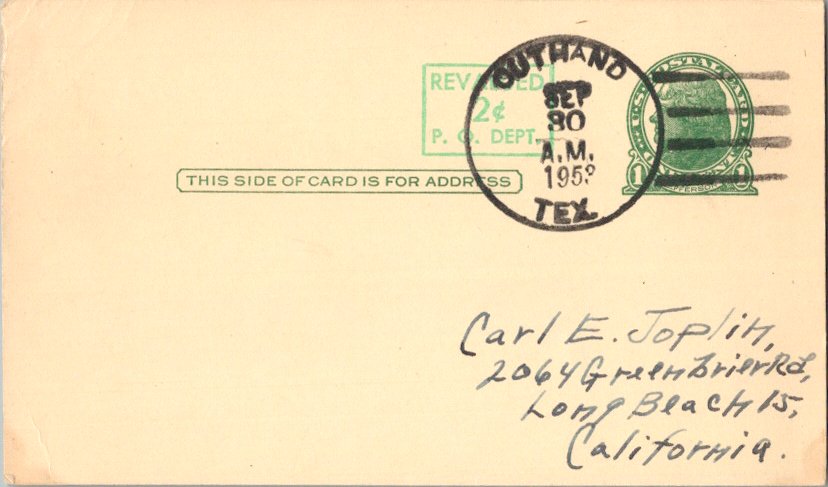 REVALUED
2¢
P. O. DEPT.
OUTHAND
SEP
30
A.M.
1953
TEX.
U.S. POSTAL CARD
1 JEFFERSON 1
THIS SIDE OF CARD IS FOR ADDRESS
Carl E. Joplin,
2064 Greenbrier Rd,
Long Beach 15,
California.